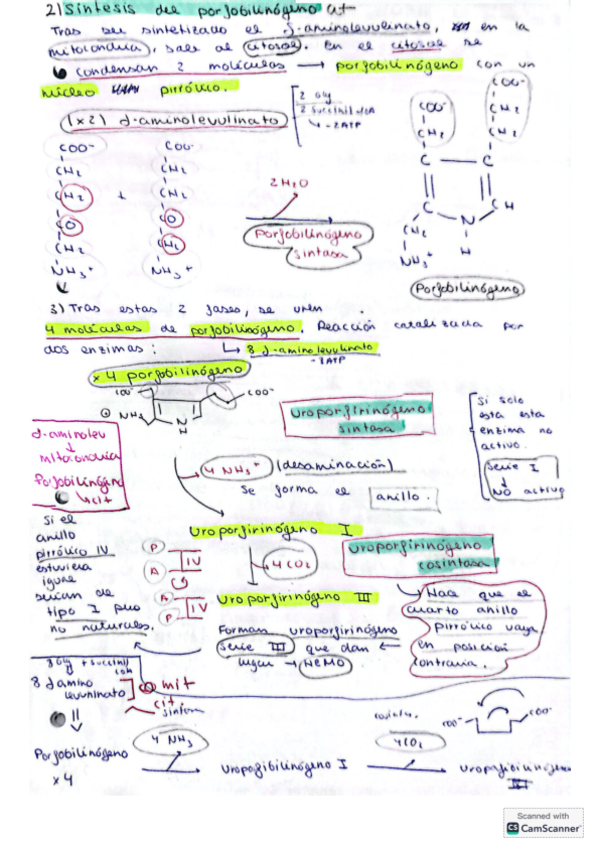 2) Síntesis del porfobilinógeno
Tras ser sintetizado el δ-aminolevulinato, en la
mitocondria, sale al citosol. En el citosol se
condensan 2 moléculas → porfobilinógeno con un
núcleo pirrólico.
(x2) d-aminolevulinato
2 Gly
2 Succinil-CoA
COO-
CH2
CH2
CO
CH2
NH3+
+
COO-
CH2
CH2
CO
CH2
NH3+
2H2O
Porfobilinógeno
sintasa
COO-
CH2
COO-
CH2
CH2
C — C
C
CH
N
H
CH2
NH3+
Porfobilinógeno
3) Tras estas 2 fases, se unen
4 moléculas de porfobilinógeno. Reacción catalizada por
dos enzimas:
8 d-aminolevulinato
x 4 porfobilinógeno
COO-
COO-
NH3
N
H
Uroporfirinógeno
sintasa
Si solo
esta esta
enzima no
activo.
Serie I
NO activo
d-aminolev
↓
mitocondria
Porfobilinógeno
↳ cit
4 NH3+ (desaminación)
Se forma el anillo.
Uroporfirinógeno I
4CO2
Uroporfirinógeno
cosintasa
Si el
anillo
pirrólico IV
estuviera
igual
serían de
tipo I pero
no naturales.
P
A
IV
A
P
IV
Uroporfirinógeno III
Forman uroporfirinógeno
Serie III que dan
lugar → HEMO
Hace que el
cuarto anillo
pirrólico vaya
en posición
contraria.
8 Gly + Succinil
CoA
8 d amino
levulinato
mit
cit
COO-
COO-
Porfobilinógeno
x 4
4 NH3
Uropofibilinógeno I
4CO2
Uropofibilinógeno
III
Scanned with
CS CamScanner